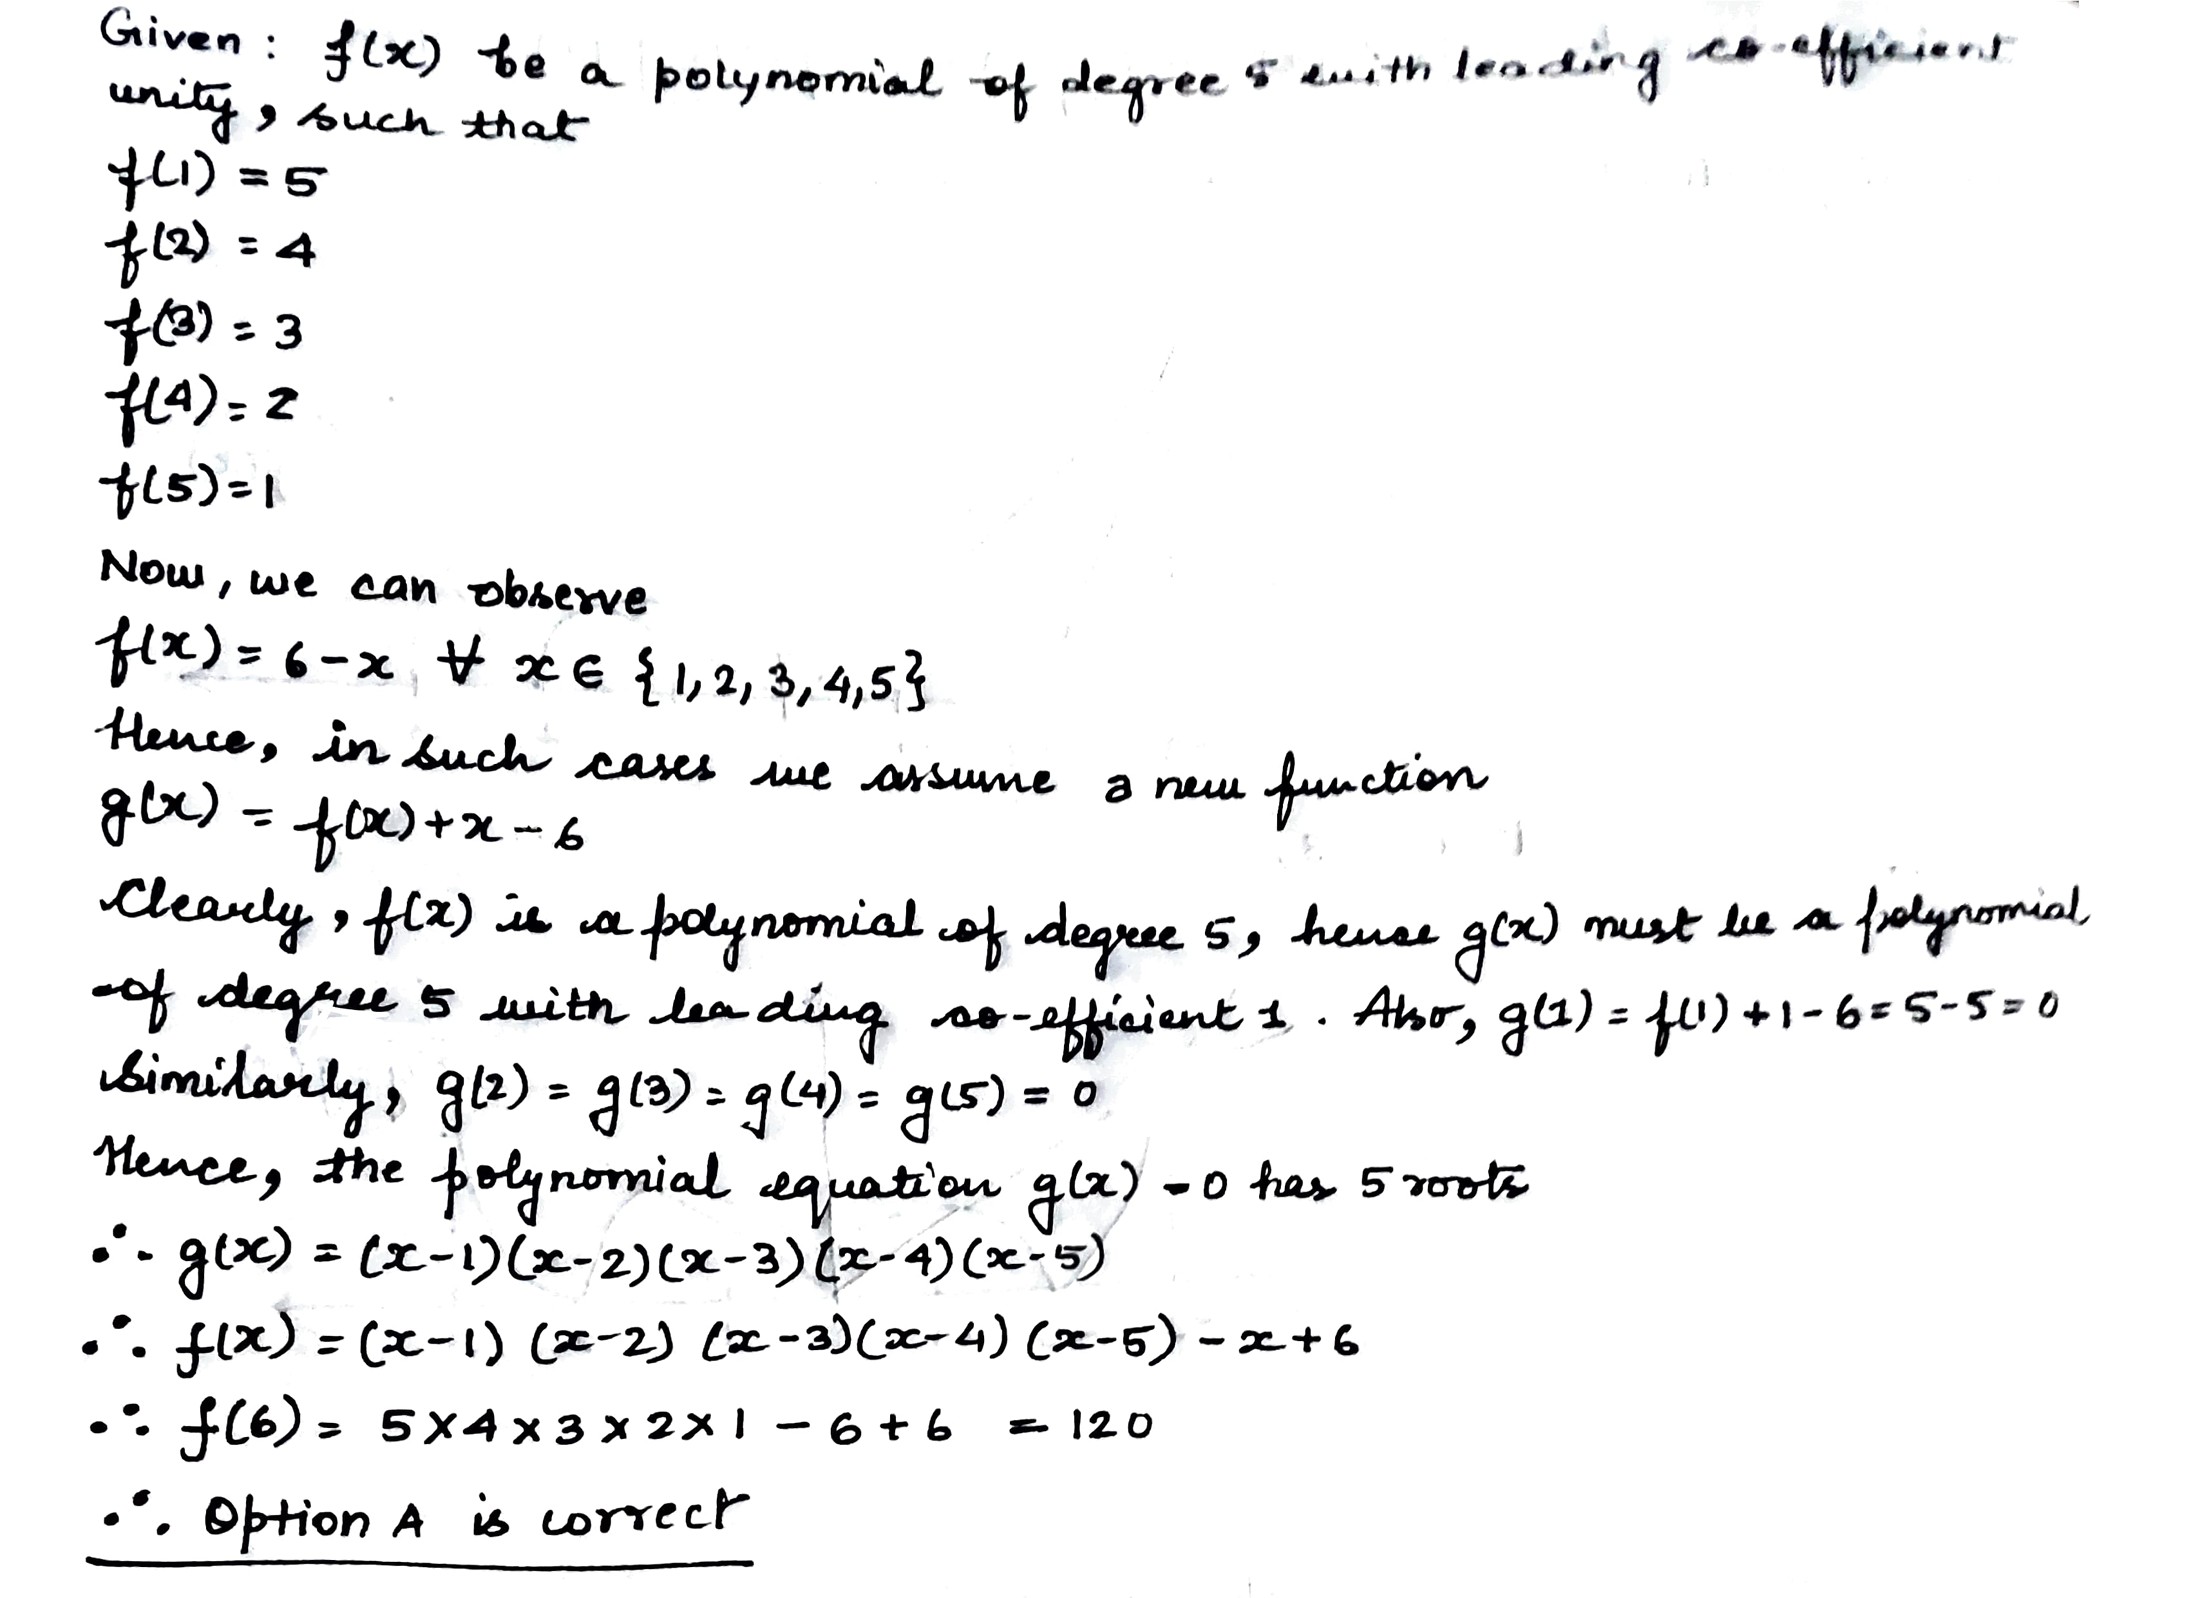 Given : f(x) be a polynomial of degree 5 with leading co-efficient
unity, such that
f(1) = 5
f(2) = 4
f(3) = 3
f(4) = 2
f(5) = 1
Now, we can observe
f(x) = 6 - x ∀ x ∈ {1, 2, 3, 4, 5}
Hence, in such cases we assume a new function
g(x) = f(x) + x - 6
Clearly, f(x) is a polynomial of degree 5, hense g(x) must be a polynomial
of degree 5 with leading co-efficient 1. Also, g(1) = f(1) + 1 - 6 = 5 - 5 = 0
Similarly, g(2) = g(3) = g(4) = g(5) = 0
Hence, the polynomial equation g(x) = 0 has 5 roots
∴ g(x) = (x-1)(x-2)(x-3)(x-4)(x-5)
∴ f(x) = (x-1) (x-2) (x-3)(x-4) (x-5) - x + 6
∴ f(6) = 5 × 4 × 3 × 2 × 1 - 6 + 6 = 120
∴ Option A is correct